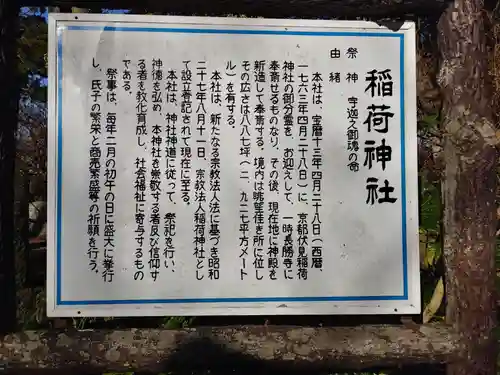 稲荷神社
祭神 宇迦之御魂の命
由緒
本社は、宝暦十三年四月二十八日(西暦
一七六三年四月二十八日)に、京都伏見稲荷
神社の御分霊を、お迎えして、一時長勝寺に
奉斎せるものなり、その後、現在地に神殿を
新造して奉斎する。境内は眺望佳き所に位し
その広さは八八七坪(二、九二七平方メート
ル)を有する。
本社は、新たなる宗教法人法に基づき昭和
二十七年八月十一日、宗教法人稲荷神社とし
て設立登記されて現在に至る。
本社は、神社神道に従って、祭祀を行い、
神徳を弘め、本神社を崇敬する者及び信仰す
る者を教化育成し、社会福祉に寄与するもの
である。
祭事は、毎年二月の初午の日に盛大に挙行
し、氏子の繁栄と商売繁盛等の祈願を行う。